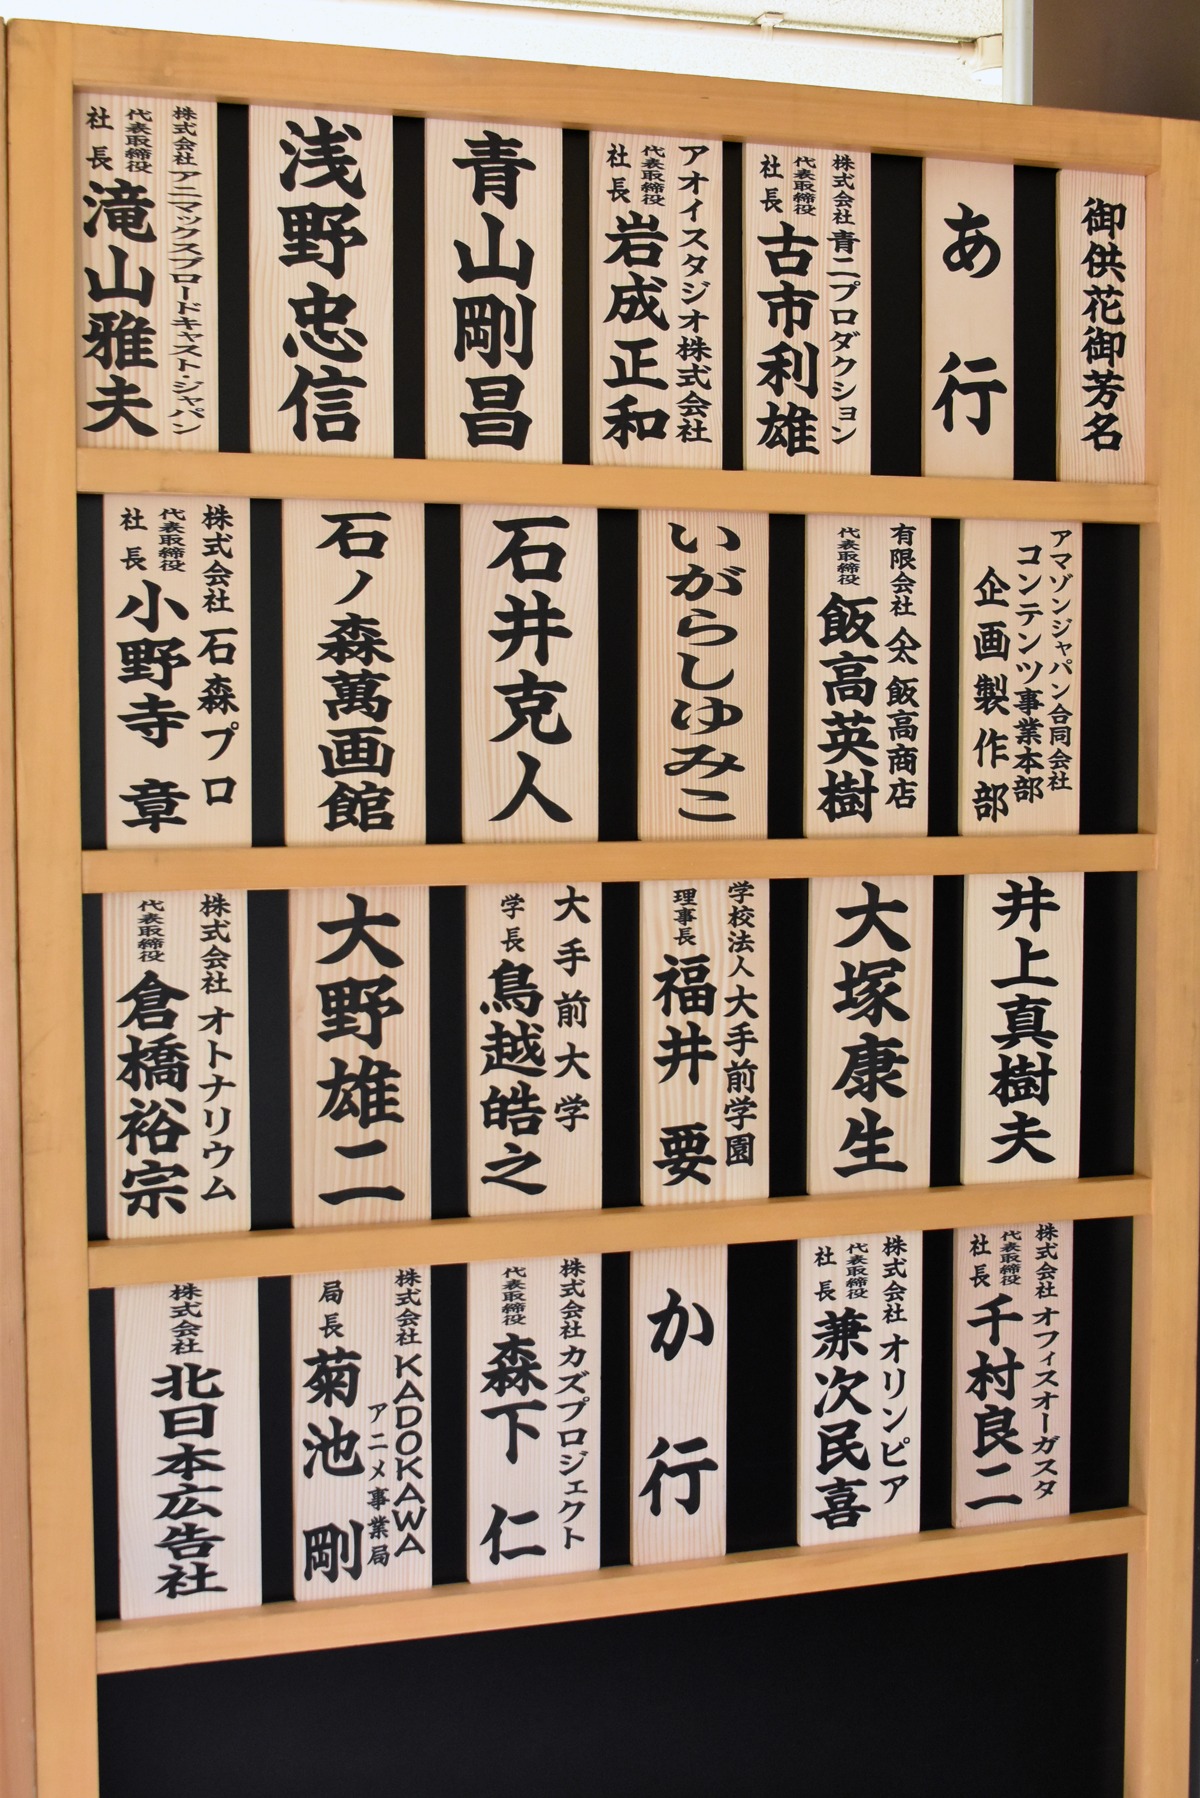 御供花御芳名
あ行
株式会社 青二プロダクション
代表取締役
社長
古市利雄
アオイスタジオ株式会社
代表取締役
社長
岩成正和
青山剛昌
浅野忠信
株式会社 アニマックスブロードキャスト・ジャパン
代表取締役
社長
滝山雅夫
アマゾンジャパン合同会社
コンテンツ事業本部
企画製作部
有限会社 飯高商店
代表取締役
飯高英樹
いがらしゆみこ
石井克人
石ノ森萬画館
株式会社 石森プロ
代表取締役
社長
小野寺 章
井上真樹夫
大塚康生
学校法人 大手前学園
理事長
福井 要
大手前大学
学長
鳥越皓之
大野雄二
株式会社 オトナリウム
代表取締役
倉橋裕宗
株式会社 オフィスオーガスタ
代表取締役
社長
千村良二
株式会社 オリンピア
代表取締役
社長
兼次民喜
か行
株式会社 カズプロジェクト
代表取締役
森下 仁
株式会社 KADOKAWA
アニメ事業局
局長
菊池 剛
株式会社
北日本広告社